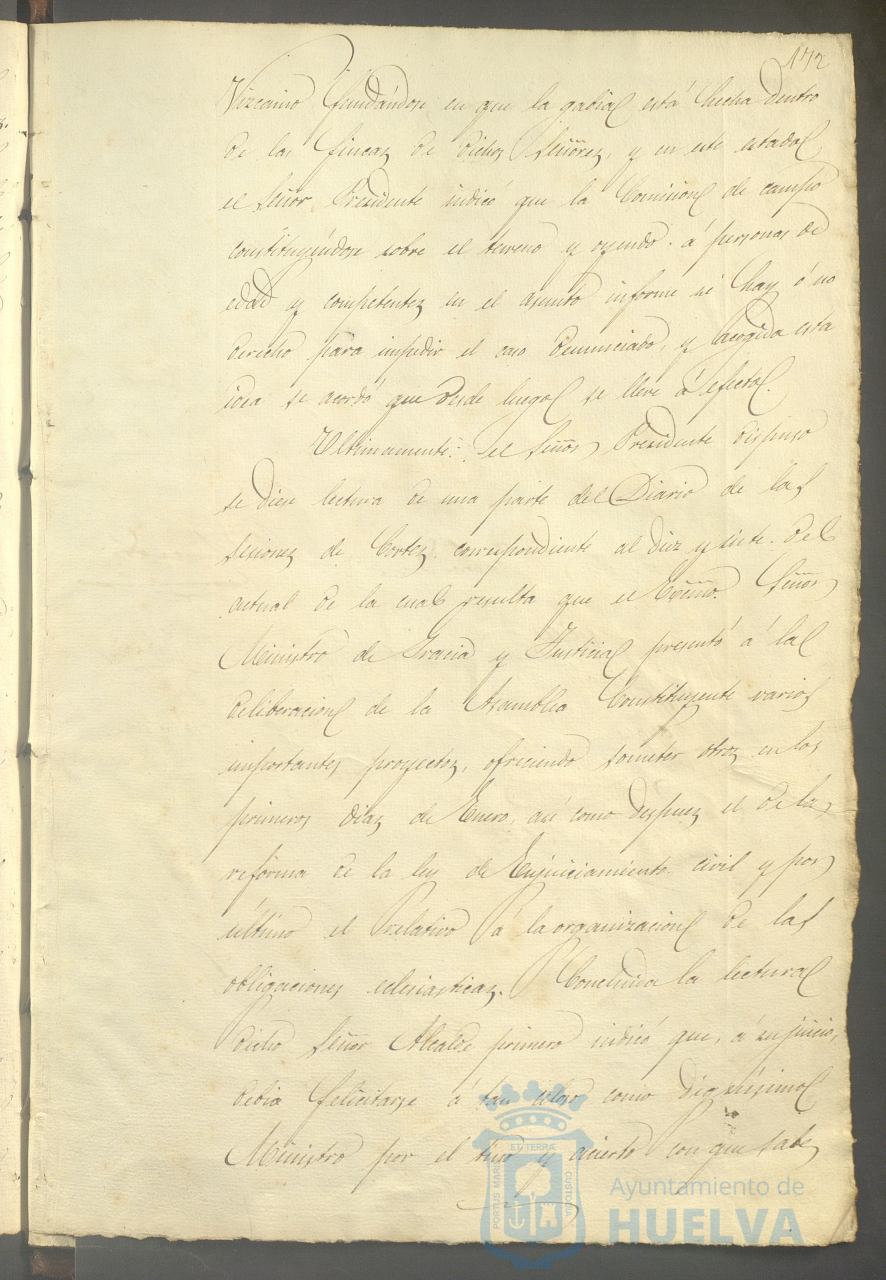 172
Vizcaino fundándose en que la gabia está hecha dentro
de las fincas de dichos Señores, y en este estado
el Señor Presidente indicó que la Comision de campo
constituyéndose sobre el terreno y oyendo á personas de
edad y competentes en el asunto informe si hay ó no
derecho para impedir el caso denunciado, y acogida esta
idea se acordó que desde luego se lleve á efecto.
Ultimamente: el Señor Presidente dispuso
se diese lectura de una parte del Diario de las
sesiones de Cortes correspondiente al diez y siete del
actual de la cual resulta que el Exmo. Señor
Ministro de Gracia y Justicia presentó á la
deliberacion de la Asamblea Constituyente varios
importantes proyectos, ofreciendo someter otros en los
primeros dias de Enero, asi como despues el de la
reforma de la ley de Enjuiciamiento civil y por
último el relativo á la organizacion de las
obligaciones eclesiasticas. Concluida la lectura
dicho Señor Alcalde primero indicó que, á su juicio,
debia felicitarse á tan celoso como dignísimo
Ministro por el tino y acierto con que sabe
PORTUS MARIS ET TERRA CUSTODIA
Ayuntamiento de
HUELVA